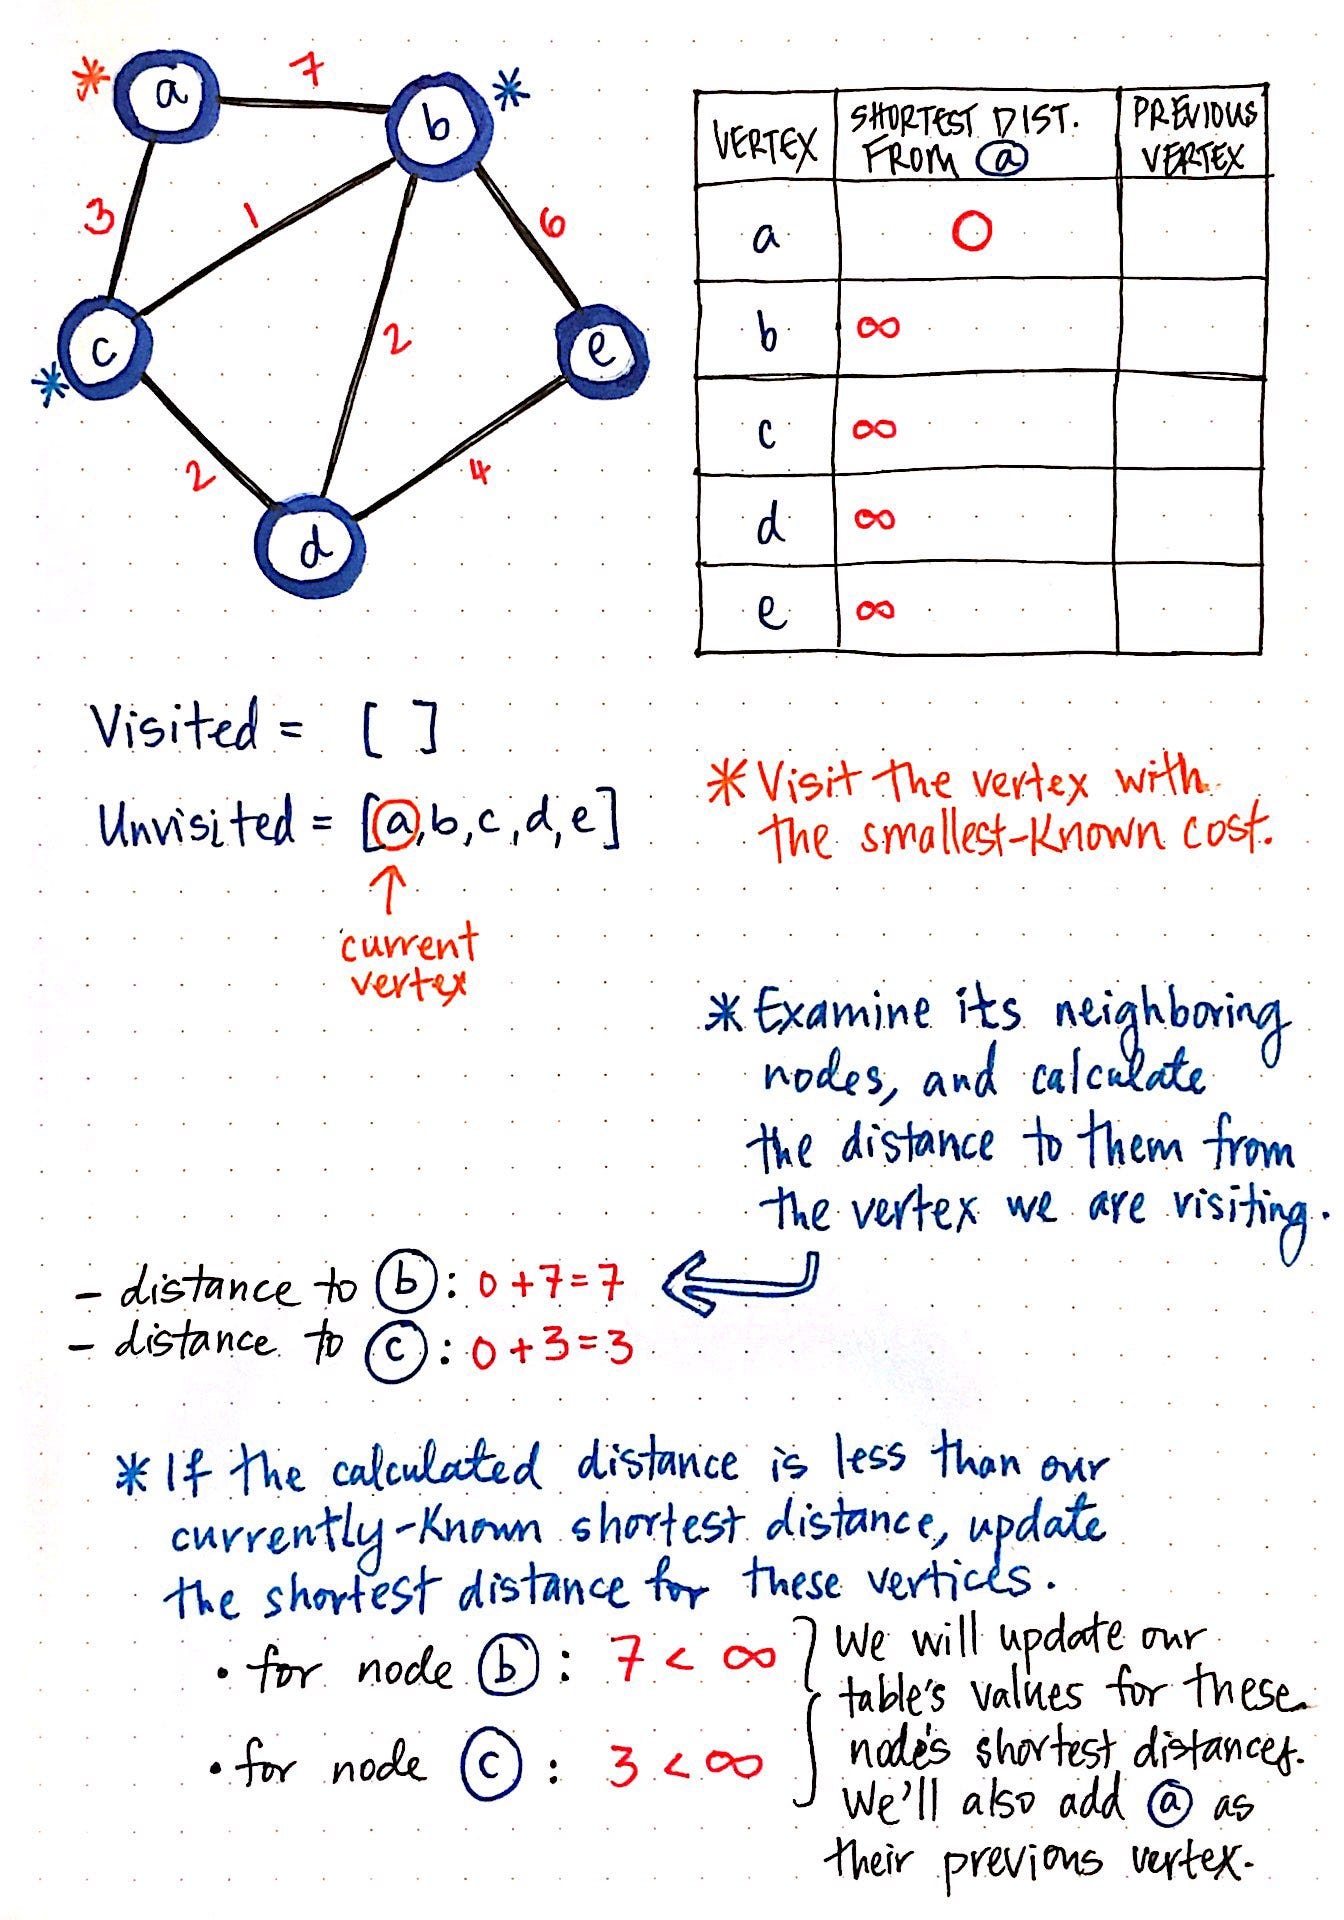 a
7
b
3
1
6
c
2
e
2
4
d
VERTEX
SHORTEST DIST.
FROM a
PREVIOUS
VERTEX
a 0
b ∞
c ∞
d ∞
e ∞
Visited = [ ]
Unvisited = [a, b, c, d, e]
↑
current
vertex
* Visit the vertex with
the smallest-known cost.
* Examine its neighboring
nodes, and calculate
the distance to them from
the vertex we are visiting.
- distance to b: 0 + 7 = 7
- distance to c: 0 + 3 = 3
* If the calculated distance is less than our
currently-known shortest distance, update
the shortest distance for these vertices.
• for node b: 7 < ∞
• for node c: 3 < ∞
We will update our
table's values for these
node's shortest distances.
We'll also add a as
their previous vertex.